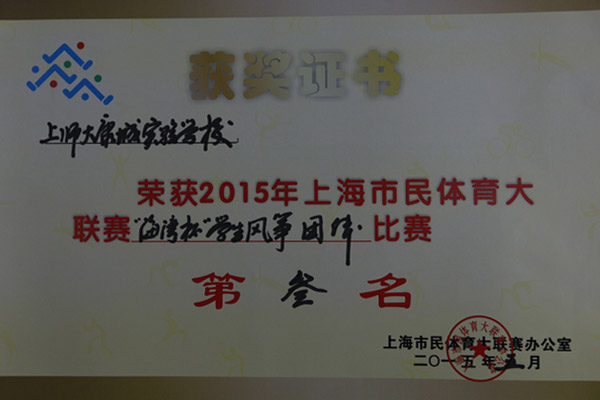 获奖证书
上师大康城实验学校
荣获2015年上海市民体育大
联赛“海湾杯”学生风筝团体比赛
第叁名
上海市民体育大联赛办公室
二〇一五年五月